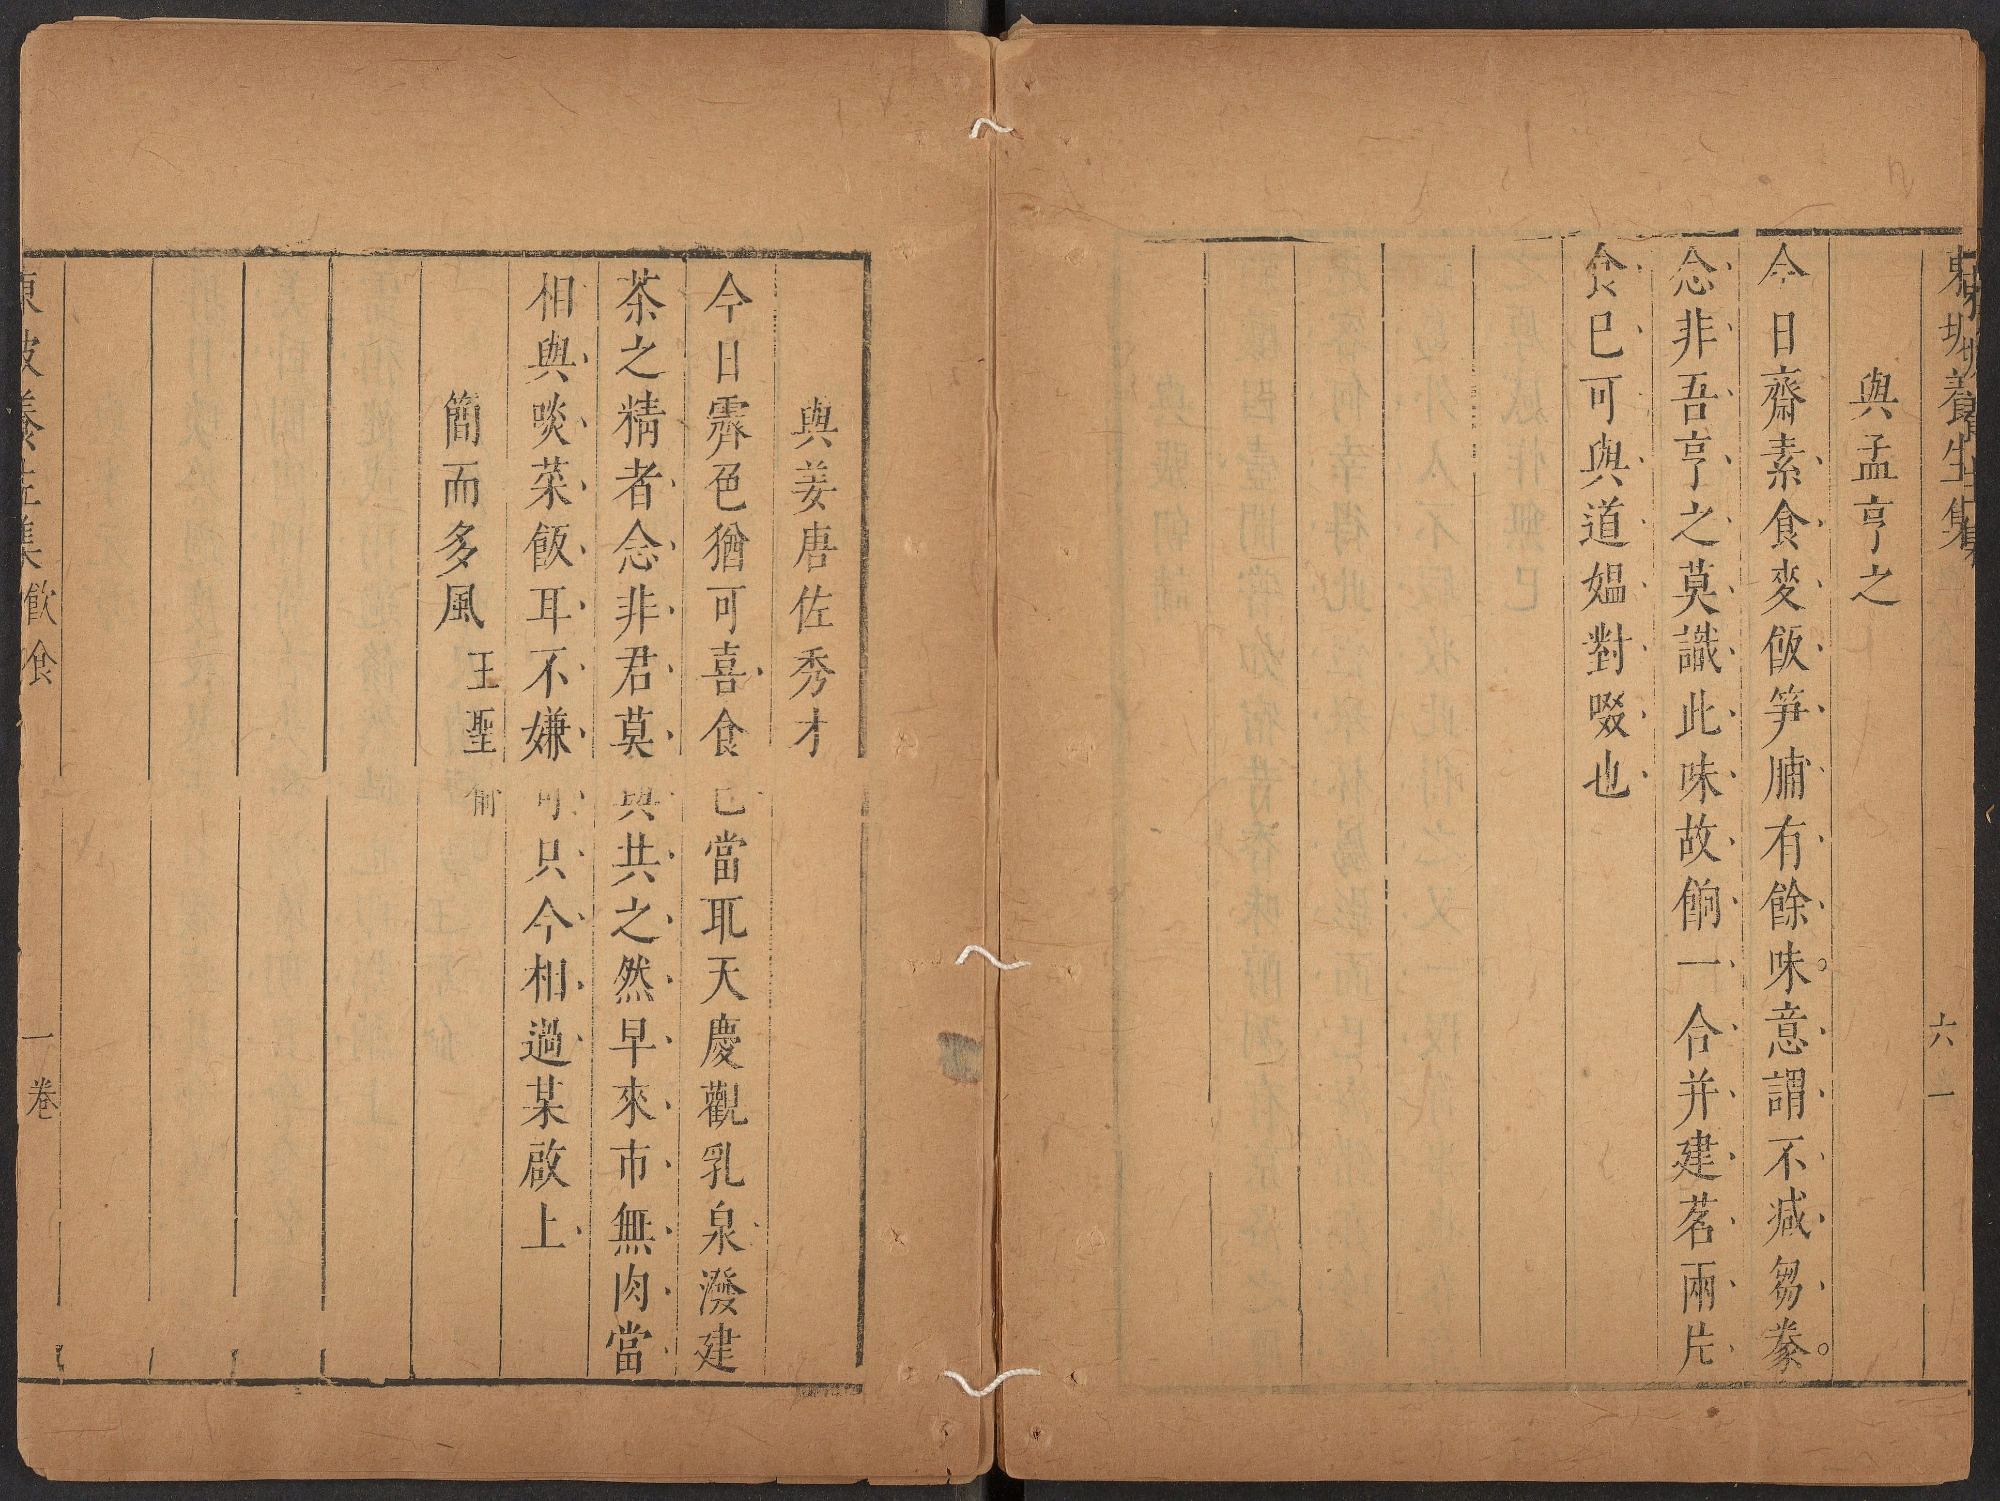 東坡養生集
六一
與孟亨之
今日齋素食麥飯笋脯有餘味意謂不减芻豢
念非吾亨之莫識此味故餉一合并建茗兩片
食已可與道媼對啜也
與姜唐佐秀才
今日霽色猶可喜食已當取天慶觀乳泉潑建
茶之精者念非君莫與共之然早來市無肉當
相與啖菜飯耳不嫌可只今相過某啟上
簡而多風王聖俞
東坡養生集飲食
一卷